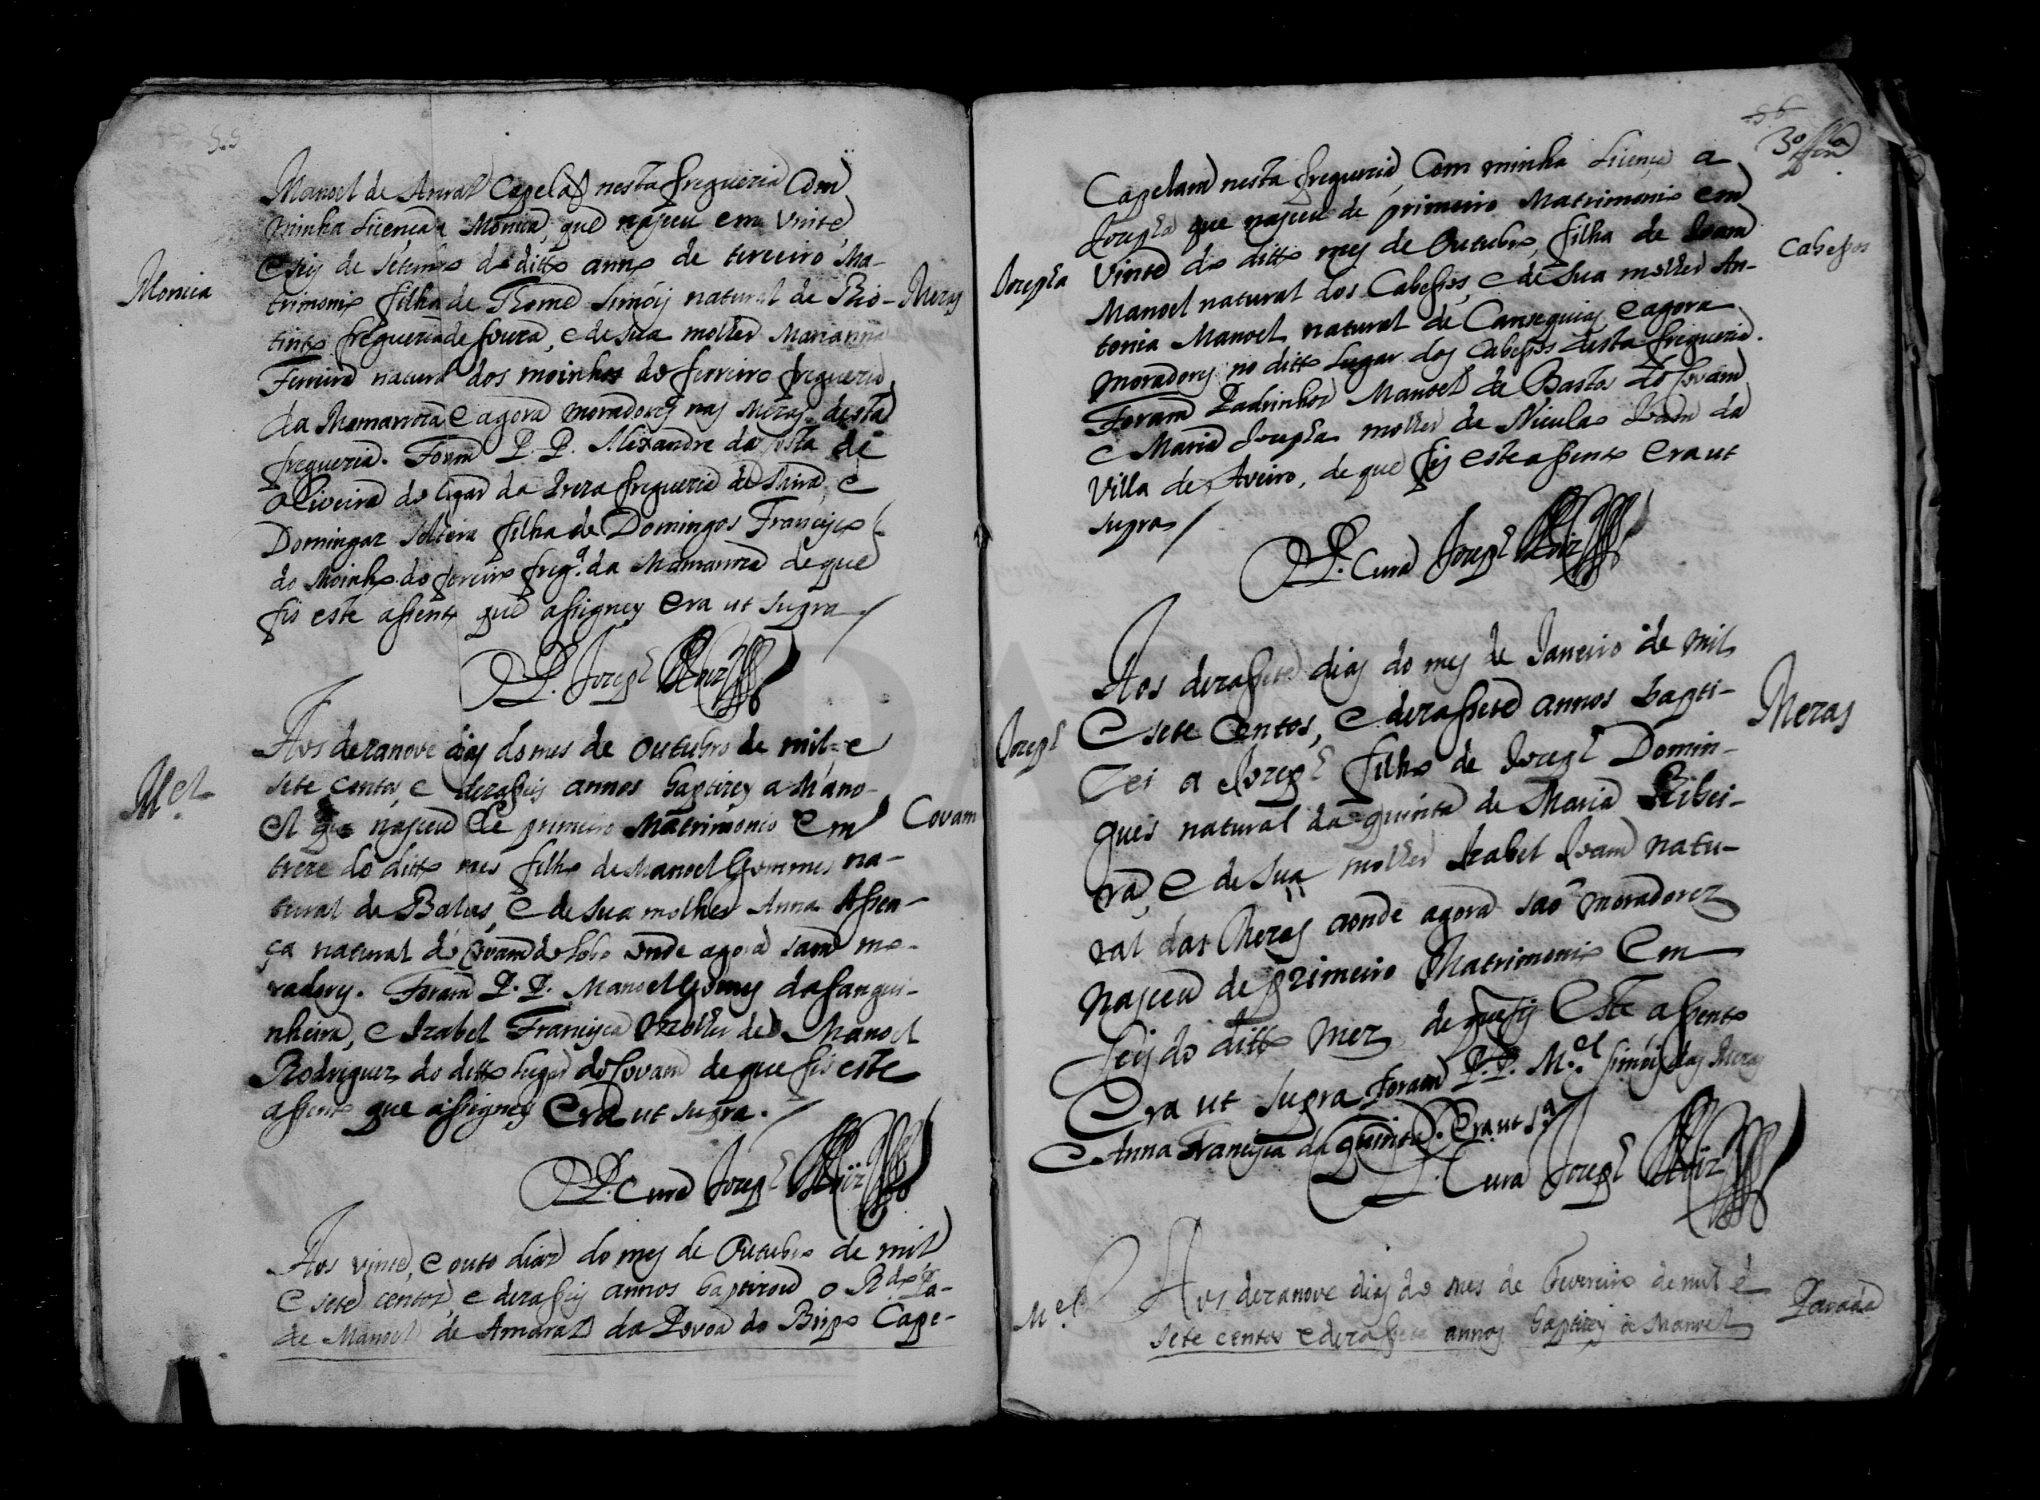 55
Manoel de Amral Capelaõ nesta freguezia Com
minha Licença a Monica, que nasceu em Vinte,
e seis de Setembro do ditto anno de terceiro Ma-
Monica
trimonio filha de Thome Simois natural de Rio-
Mezas
tinto freguezia de Soura, e de sua molher Marianna
Ferreira natural dos moinhos do ferreiro freguezia
da Mamarroza e agora moradores nas Mezas desta
freguezia. Foram P. P. Alexandre da Costa de
Oliveira do lugar da Preza freguezia de Mira, e
Domingas solteira filha de Domingos Francisco
do Moinho do ferreiro freg.ª da Mamarroza de que
fis este assento que assigney Era ut supra.
P. Joseph Roiz
Aos dezanove dias do mes de outubro de mil, e
sete centos, e dezasseis annos baptizey a Mano-
Mel.
el que nasceu de primeiro Matrimonio Em
Covam
treze do ditto mes filho de Manoel Gommes na-
tural de Balas, e de sua molher Anna Assen-
ça natural do Covam do Lobo onde agora sam mo-
radores. Foram P. P. Manoel Gomes da Sangui-
nheira, e Izabel Francisca molher de Manoel
Rodriguez do ditto lugar do Covam de que fis este
assento que assigney Era ut supra.
P. Cura Joseph Roiz
Aos vinte, e outo dias do mes de Outubro de mil
e sete centos, e dezasseis annos baptizou o R.do Pa-
de Manoel de Amaral da Povoa do Bispo Cape-
56
Capelam nesta freguezia, Com minha Licença a
Josepha que nasceu de primeiro Matrimonio em
Josepha
Vinte do ditto mes de Outubro, filha de Joam
Cabessos
Manoel natural dos Cabessos, e de sua molher An-
tonia Manoel, natural de Carregais, e agora
moradores no ditto Lugar dos Cabessos desta freguezia.
Foram Padrinhos Manoel de Bastos do Covam
e Maria Josepha molher de Niculao Joam da
Villa de Aveiro, de que fis este assento Era ut
supra
P. Cura Joseph Roiz
Aos dezassete dias do mes de Janeiro de mil
e sete Centos, e dezassete annos bapti-
Joseph
Mezas
zei a Joseph filho de Joseph Domin-
gues natural da quinta de Maria Ribei-
ra, e de sua molher Izabel Joam natu-
ral das Mezas aonde agora saõ moradorez
Nasceu de primeiro Matrimonio Em
seis do ditto mez de que fis Este assento
Era ut supra, Foram P. P. M.el Simois das Mezas
e Anna Francisca da quinta. Era ut s.ª
P. Cura Joseph Roiz
M.el
Aos dezanove dias do mes de Fevereiro de mil e
sete centos e dezassete annos baptizey a Manoel